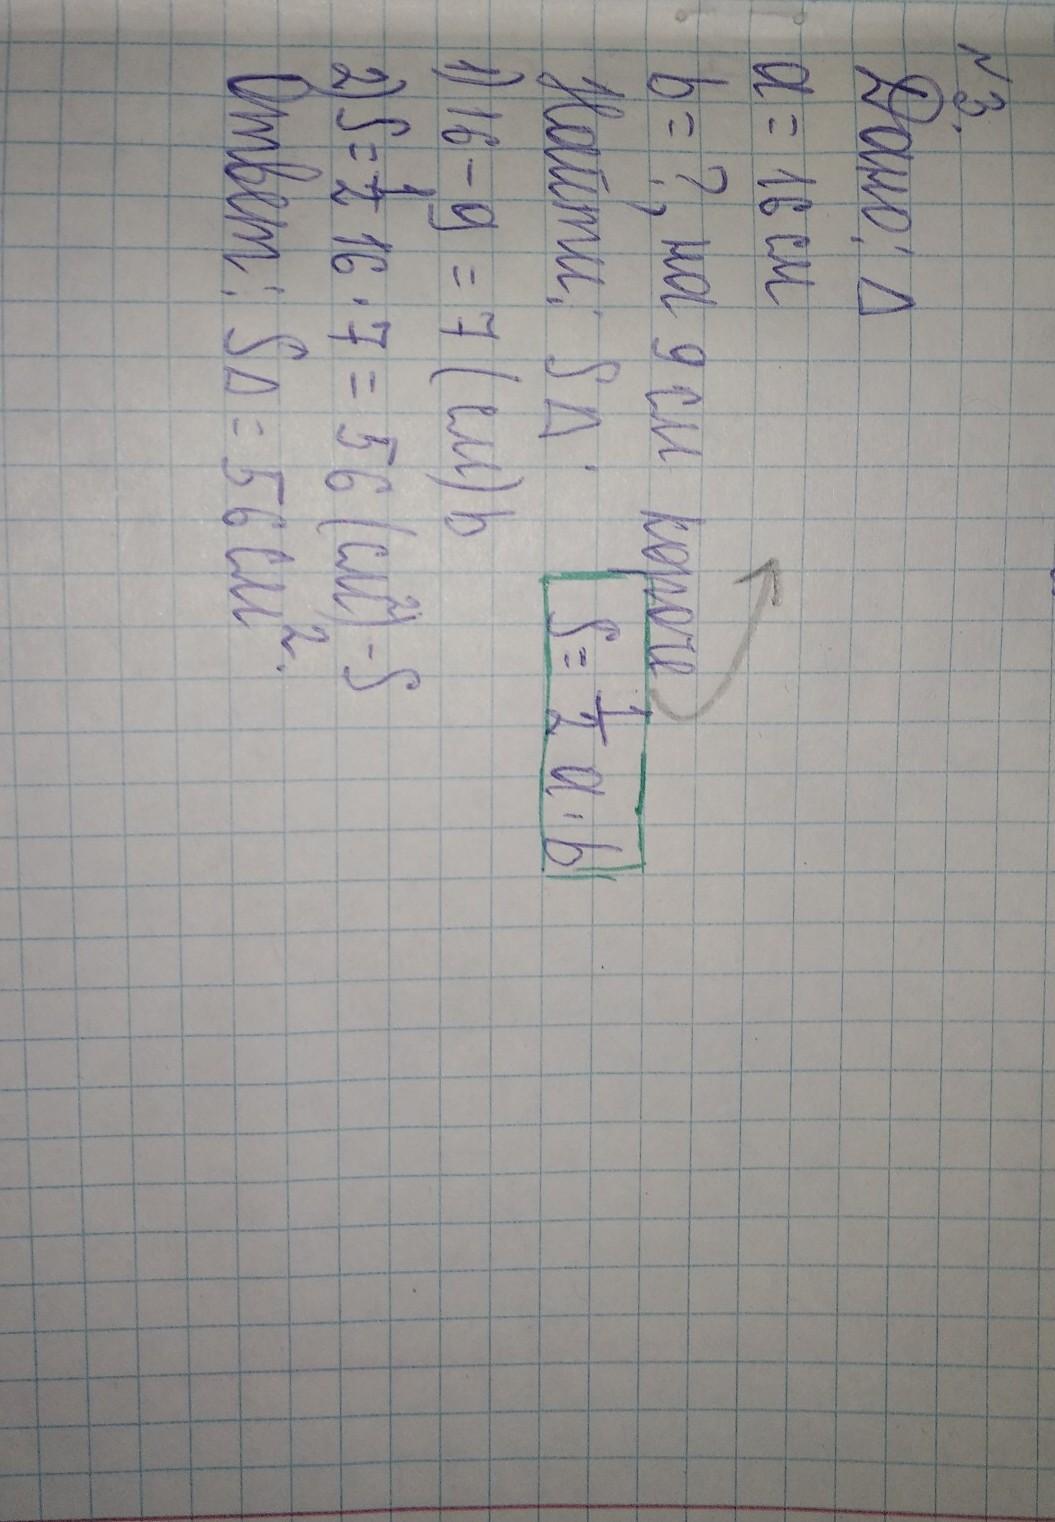 №3.
Дано: Δ
a = 16 см
b = ?, на 9 см короче
Найти: SΔ.
S = 1/2 a · b
1) 16 - 9 = 7 (см) b
2) S = 1/2 16 · 7 = 56 (см²) - S
Ответ: SΔ = 56 см².